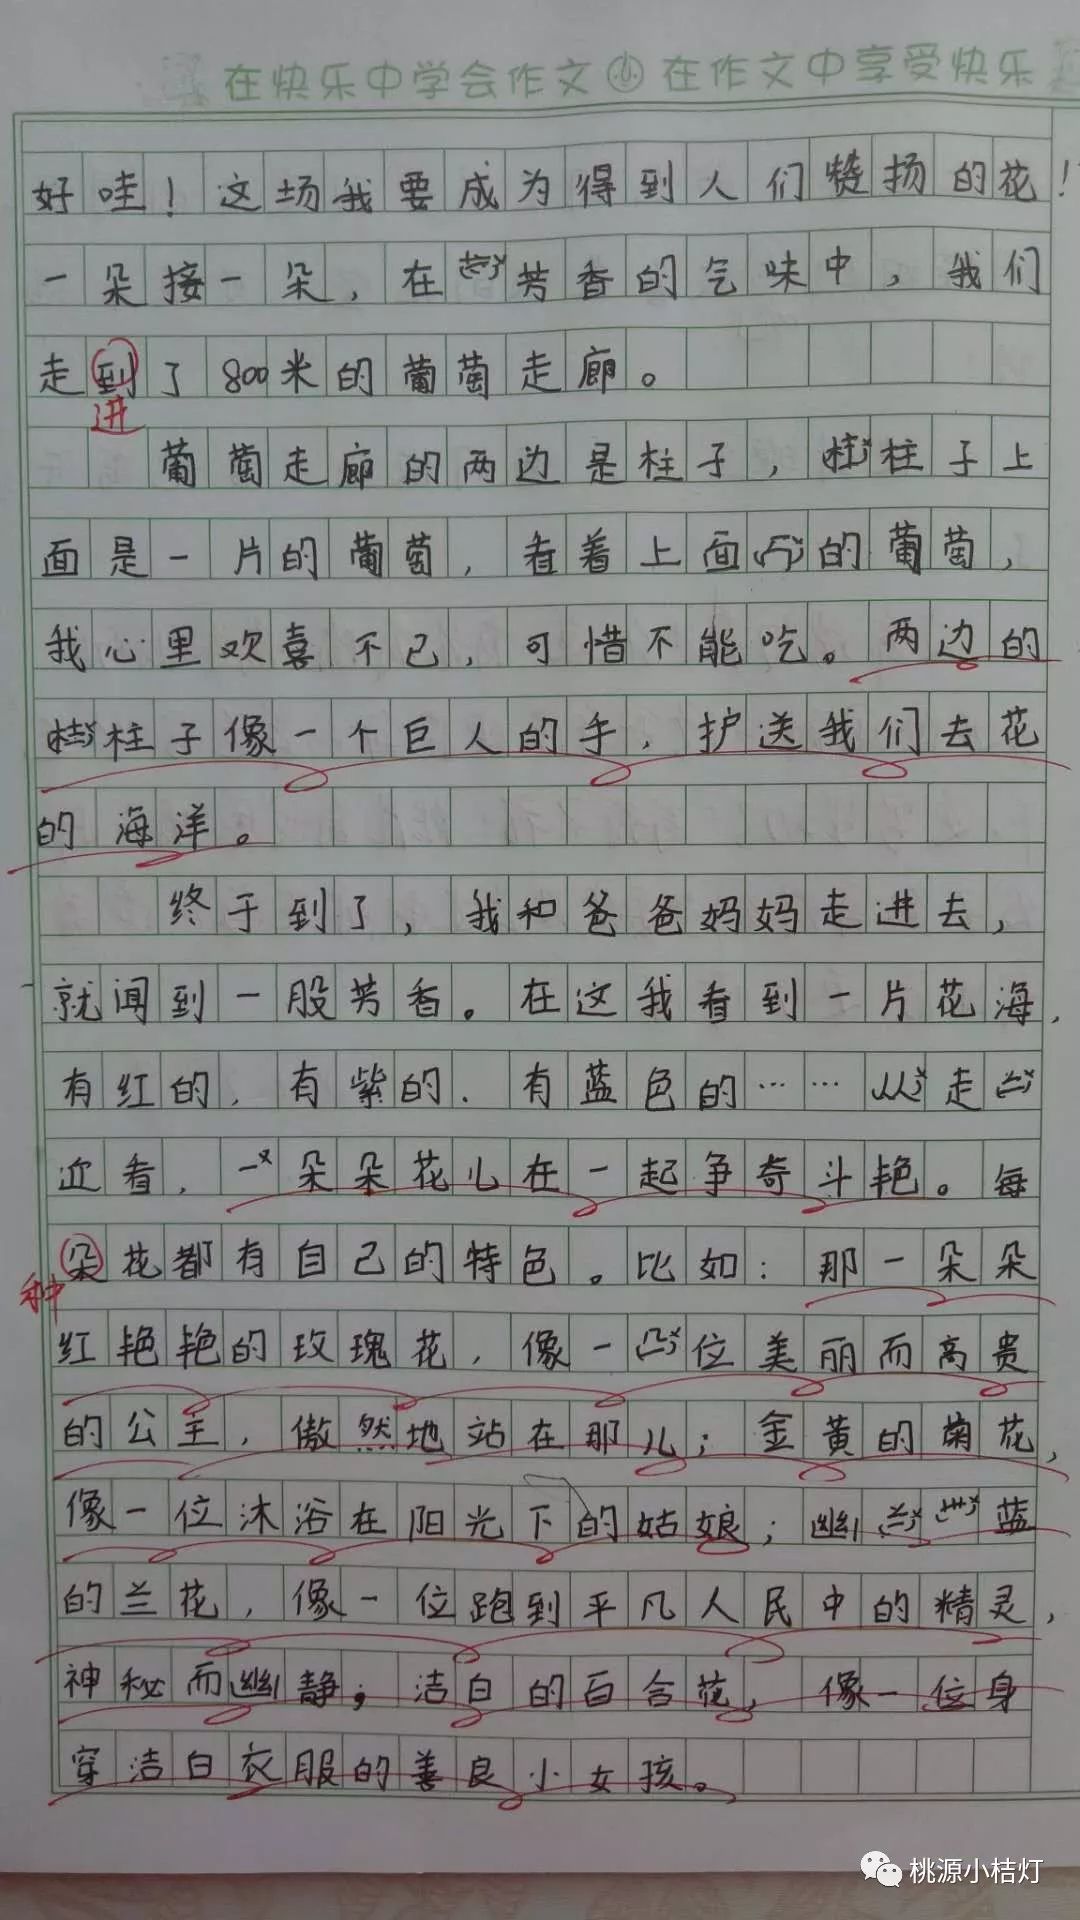 在快乐中学会作文 在作文中享受快乐
好哇！这场我要成为得到人们赞扬的花！
一朵接一朵，在芳香的气味中，我们
走到了800米的葡萄走廊。
进
葡萄走廊的两边是柱子，柱子上
面是一片的葡萄，看着上面的葡萄，
我心里欢喜不已，可惜不能吃。两边的
柱子像一个巨人的手，护送我们去花
的海洋。
终于到了，我和爸爸妈妈走进去，
就闻到一股芳香。在这我看到一片花海，
有红的，有紫的．有蓝色的……走
近看，一朵朵花儿在一起争奇斗艳。每
朵花都有自己的特色。比如：那一朵朵
种
红艳艳的玫瑰花，像一位美丽而高贵
的公主，傲然地站在那儿；金黄的菊花，
像一位沐浴在阳光下的姑娘；幽蓝
的兰花，像一位跑到平凡人民中的精灵，
神秘而幽静；洁白的百合花，像一位身
穿洁白衣服的善良小女孩。
桃源小桔灯